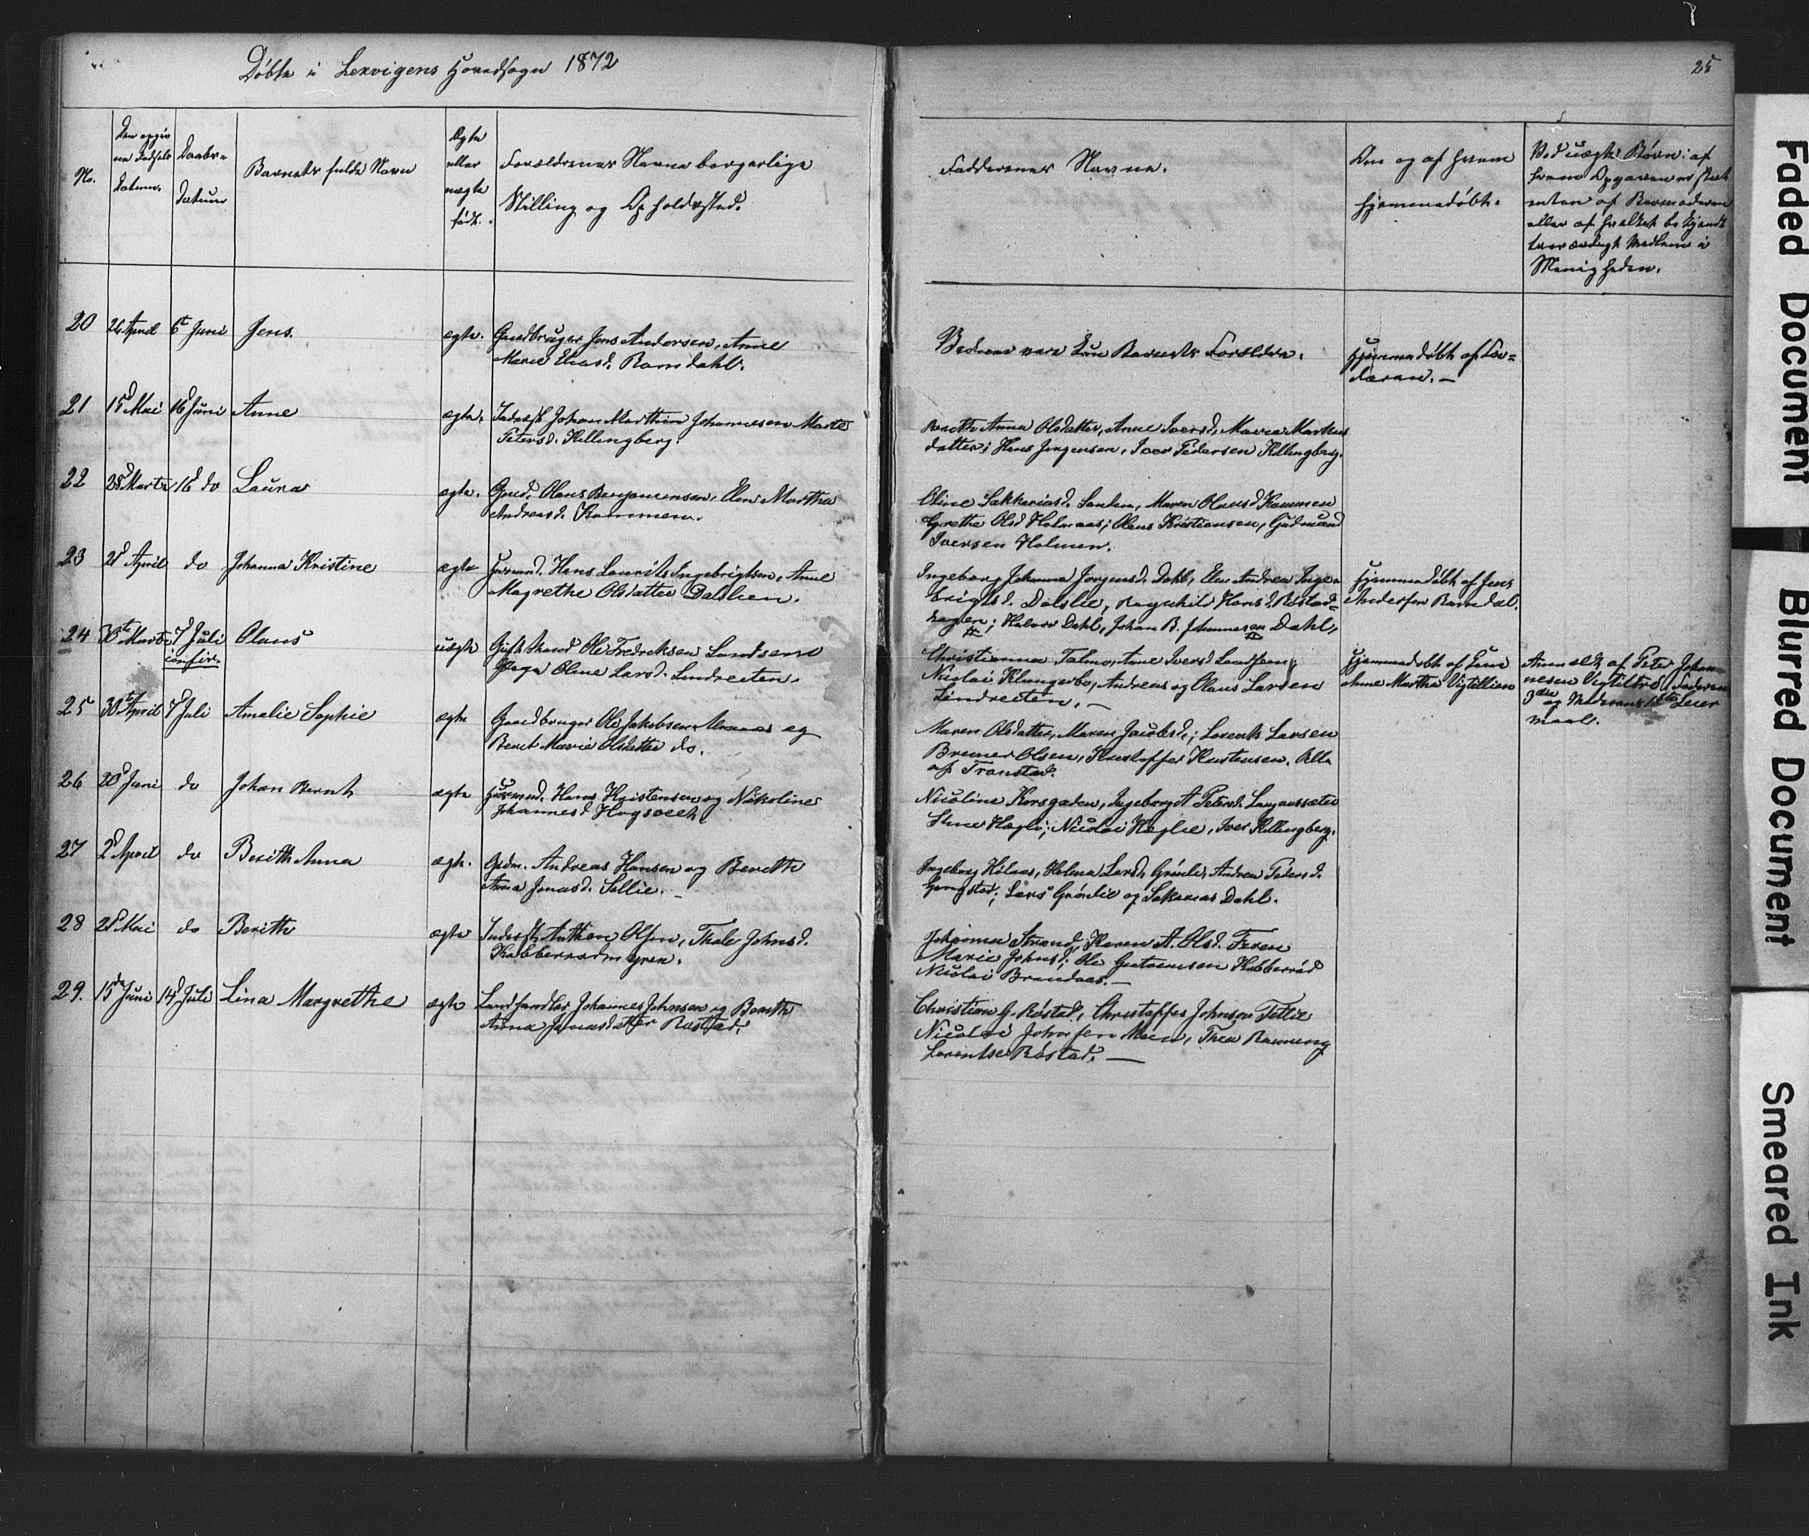 Døbte i Lexvigens Hovedsogn 1872
25
No.
Den opgiv
ne Fødsels
Datum.
Daabs-
Datum
Barnets fulde Navn
Ægte
eller
uægte
født.
Forældrenes Navne borgerlige
Stilling og Opholdssted.
Faddernes Navne.
Om og af hvem
hjemmedøbt.
Ved uægte Børn: af
hvem Opgaven er skeet
enten af Barnmoderen
eller af hvilket bekjendt
troværdigt Medlem i
Menigheden.
20 26 April 6t Juni Jens. ægte. Gaardbruger Jens Andersen, Anne
Marie Eliasd. Ramdahl.
Vedneo vare kun Barnets Forældre.
Hjemmedøbt af For-
ældren. —
21 15d Mai 16d Juni Anne ægte. Inderst Johan Marthin Johannesen Marte
Petersd. Killingberg.
Berethe Anna Olsdatter, Anne Iversd, Maria Markus
datter; Hans Jørgensen, Iver Pedersen Killingberg.
22 28d Marts 16d do Laura ægte. Gmd. Olaus Benjaminsen, Elen Martha
Andreasd. Kammen.
Eline Sakkariasd. Sanden, Maren Olausd Kammen
Grethe Olsd Holmaas; Olaus Kristiansen, Gudmund
Iversen Holmen.
23 21d April do Johanna Kristine ægte Husmd. Hans Laurits Ingebrigtsen, Anne
Magrethe Olsdatter Dalslien.
Ingeborg Johanna Jørgensd. Dahl, Elen Andrea Inge-
brigtsd. Dalslie, Ragnhild Hansd. Røstad-
hagen; Halvor Dahl, Johan B. Johannesen Dahl,
Hjemmedøbt af Jens
Andersen Ramdal.
24 30te Marts 7d Juli Olaus uægte Gift Mand Ole Fredriksen Landsem
confir.
Pige Oline Larsd. Lindreeten.
Christianna Talmo, Anne Iversd Landsem;
Nicolai Klungerbo, Andreas og Olaus Larsen
Lindreeten. —
Hjemmedøbt af Kone
Anne Martha Vigtillien
Anmeldt af Peter Johan
nesen Vigtiltrø. Faderens
3die og Moderens 1ste Leier
maal.
25 30te April 7d Juli Amalie Sophie ægte Gaardbruger Ole Jakobsen Moan og
Beret Marie Olsdatter do.
Maren Olsdatter, Maren Jacobsd,; Lorents Larsen
Bremer Olsen, Kristoffer Kristensen. Alle
af Transtad.
26 20d Juni do Johan Bernt ægte Husmd. Hans Kristensen og Nikoline
Johannesd Hogsveet.
Nicoline Korsgaden, Ingeborg A Petersd. Langaassæter
Stine Hæglie; Nicolai Hæglie, Iver Killingberg.
27 2d April do Berith Anna ægte. Gmdm. Andreas Hansen og Berethe
Anna Jonasd. Sellie. —
Ingeborg Hølaas, Helena Larsd. Grønlie Andrea Pedersd.
Gongstad; Lars Grønlie og Sakarias Dahl.
28 21d Mai do Berith ægte Inderst Anthon Olsen, Thale Johnsd.
Kobberaadmyren.
Johanna Strand, Karen A. Olsd. Teren
Marie Johnsd; Ole Gustavsen Kobberaad
Nicolai Brandaas. —
29. 15de Juni 14d Juli Lina Margrethe ægte Landhandler Johannes Johnsen og Berethe
Anna Jonasdatter Røstad.
Christian G. Røstad, Christoffer Johnsen Tellie
Nicolai Johnsen Moen, Thea Ramung
Lorentse Røstad. —
Faded Document
Blurred Document
Smeared Ink